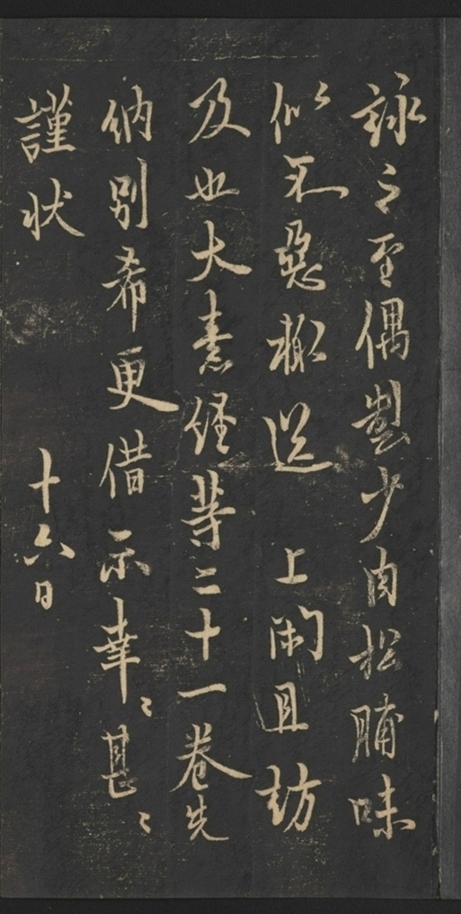 詠之至偶製少肉松脯味
似不惡輒送 上閑且訪
及也大素經等二十一卷先
納別希更借示幸〻甚〻
謹狀 十六日